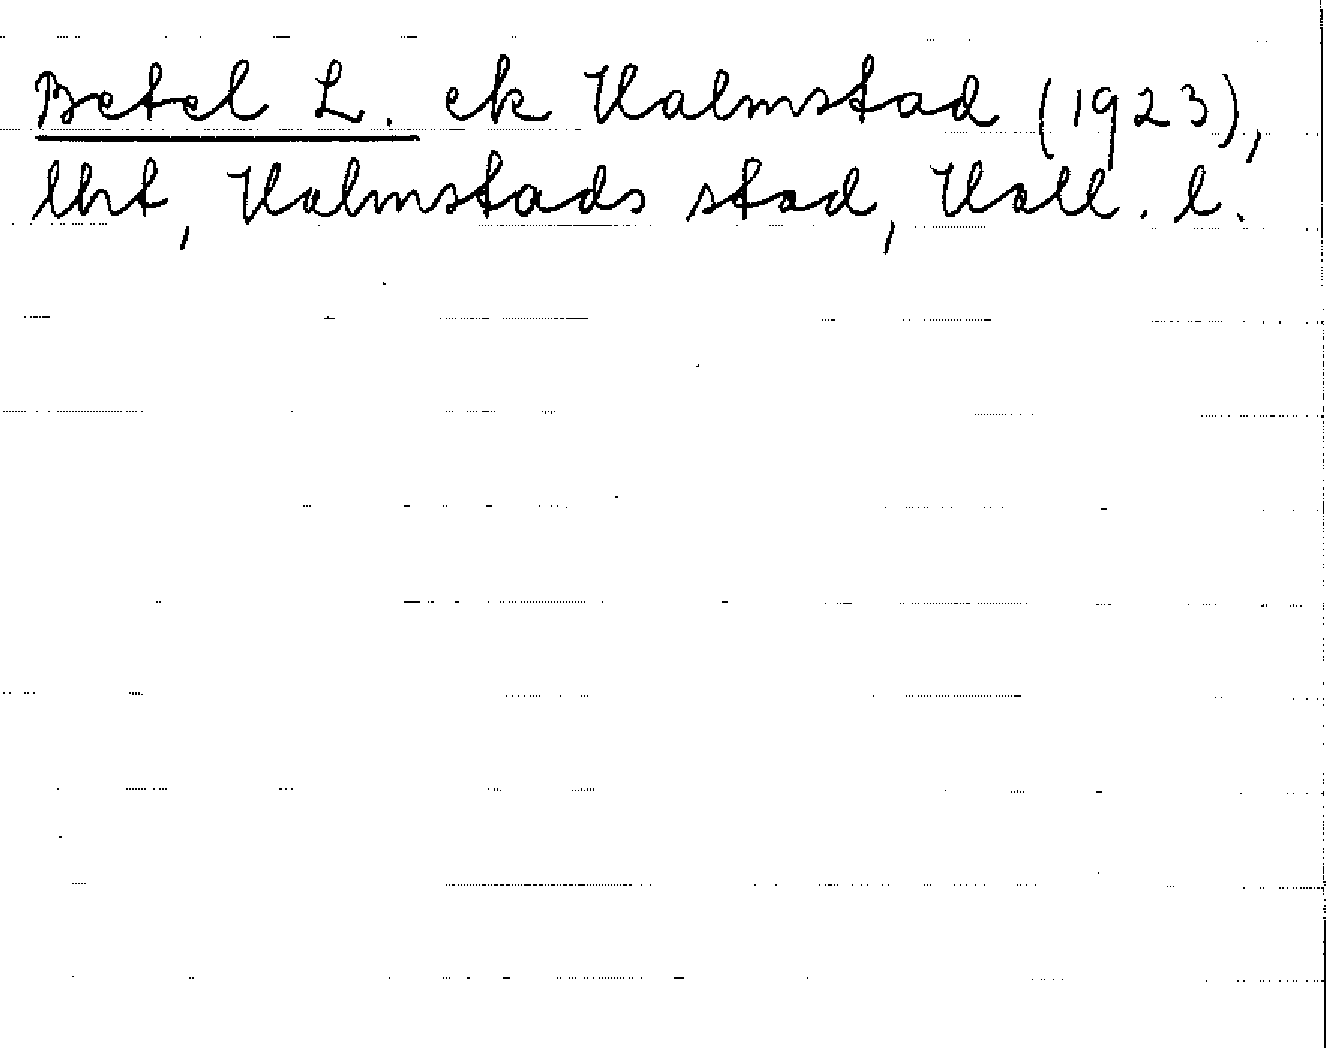 Betel L. ek Halmstad (1923),
lht, Halmstads stad, Hall. l.